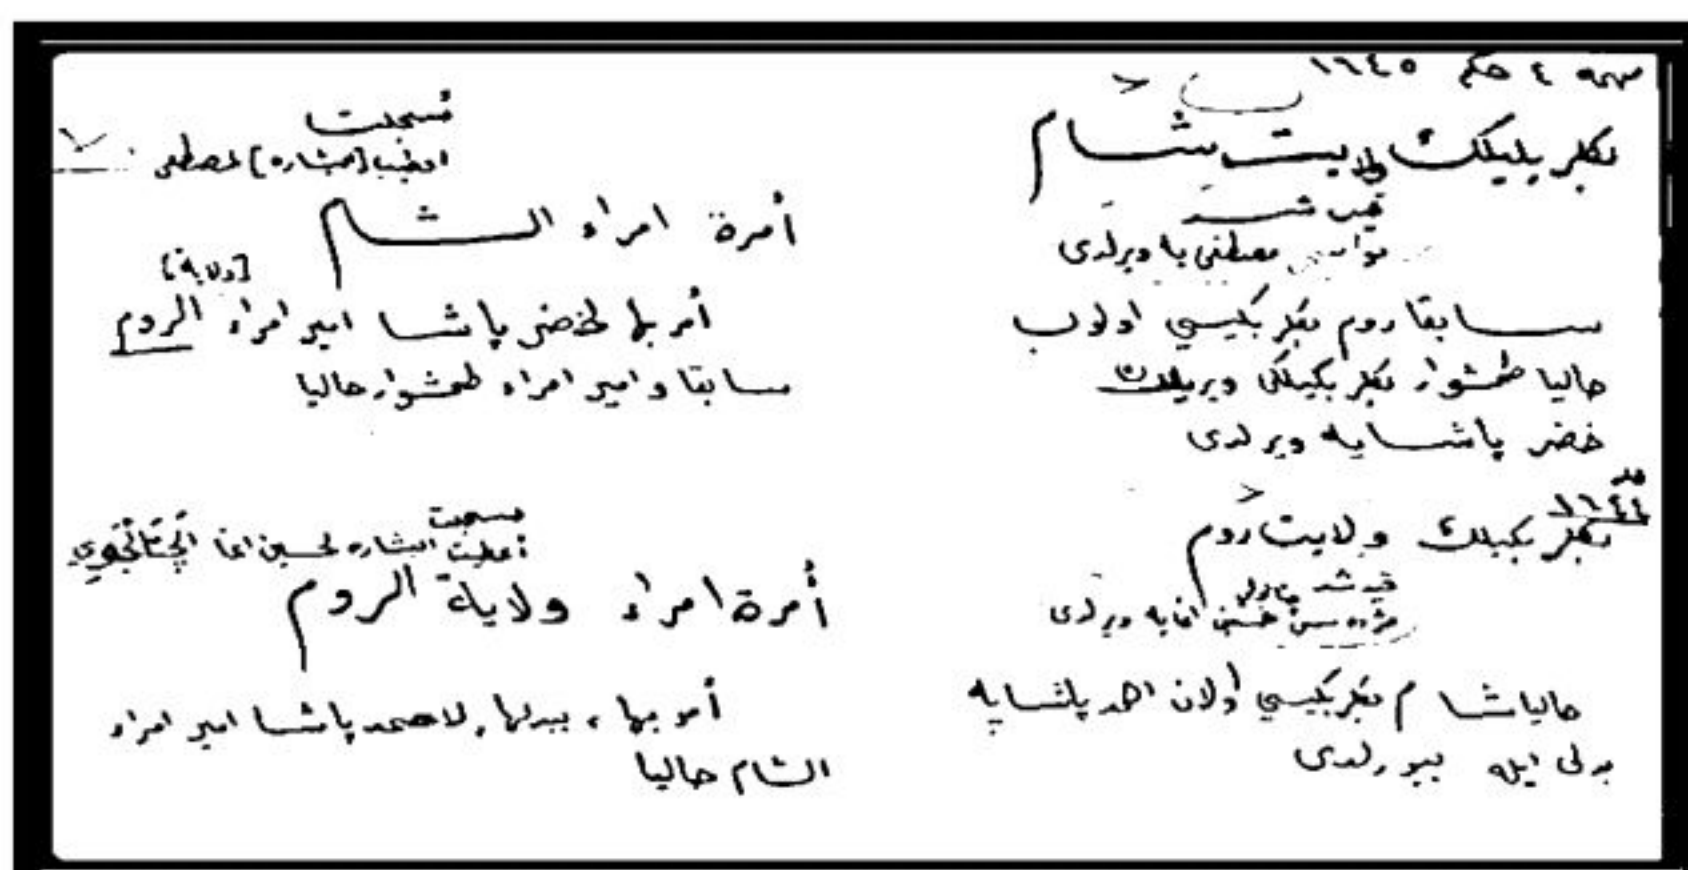 مهمه ٤ حكم ١٦٤٥
بكلربليك ولايت شام
قيد شد
مصطفى يا ويرلدى
سابقا روم بكلر بكيسي اولوب
حاليا طمشوار بكلر بكيلكى ويريلن
خضر پاشايه ويرلدى
١٦٤٤
بكلر بكيلك ولايت روم
قيد شد
مژده سن حسين اغايه ويرلدى
حاليا شام بكلر بكيسي اولان احمد پاشايه
بدلى ايله بيورلدى
سجلت
اعطيت [البشاره] لمصطفى
أمرة امراء الشام
[ولاية]
أمر بها لخضر پاشا امير امراء الروم
سابقا و امير امراء طمشوار حاليا
سجلت
أعطيت البشاره لحسين اغا
أمرة امراء ولاية الروم
أمر بها، ببدلها، لاحمد پاشا امير امراء
الشام حاليا